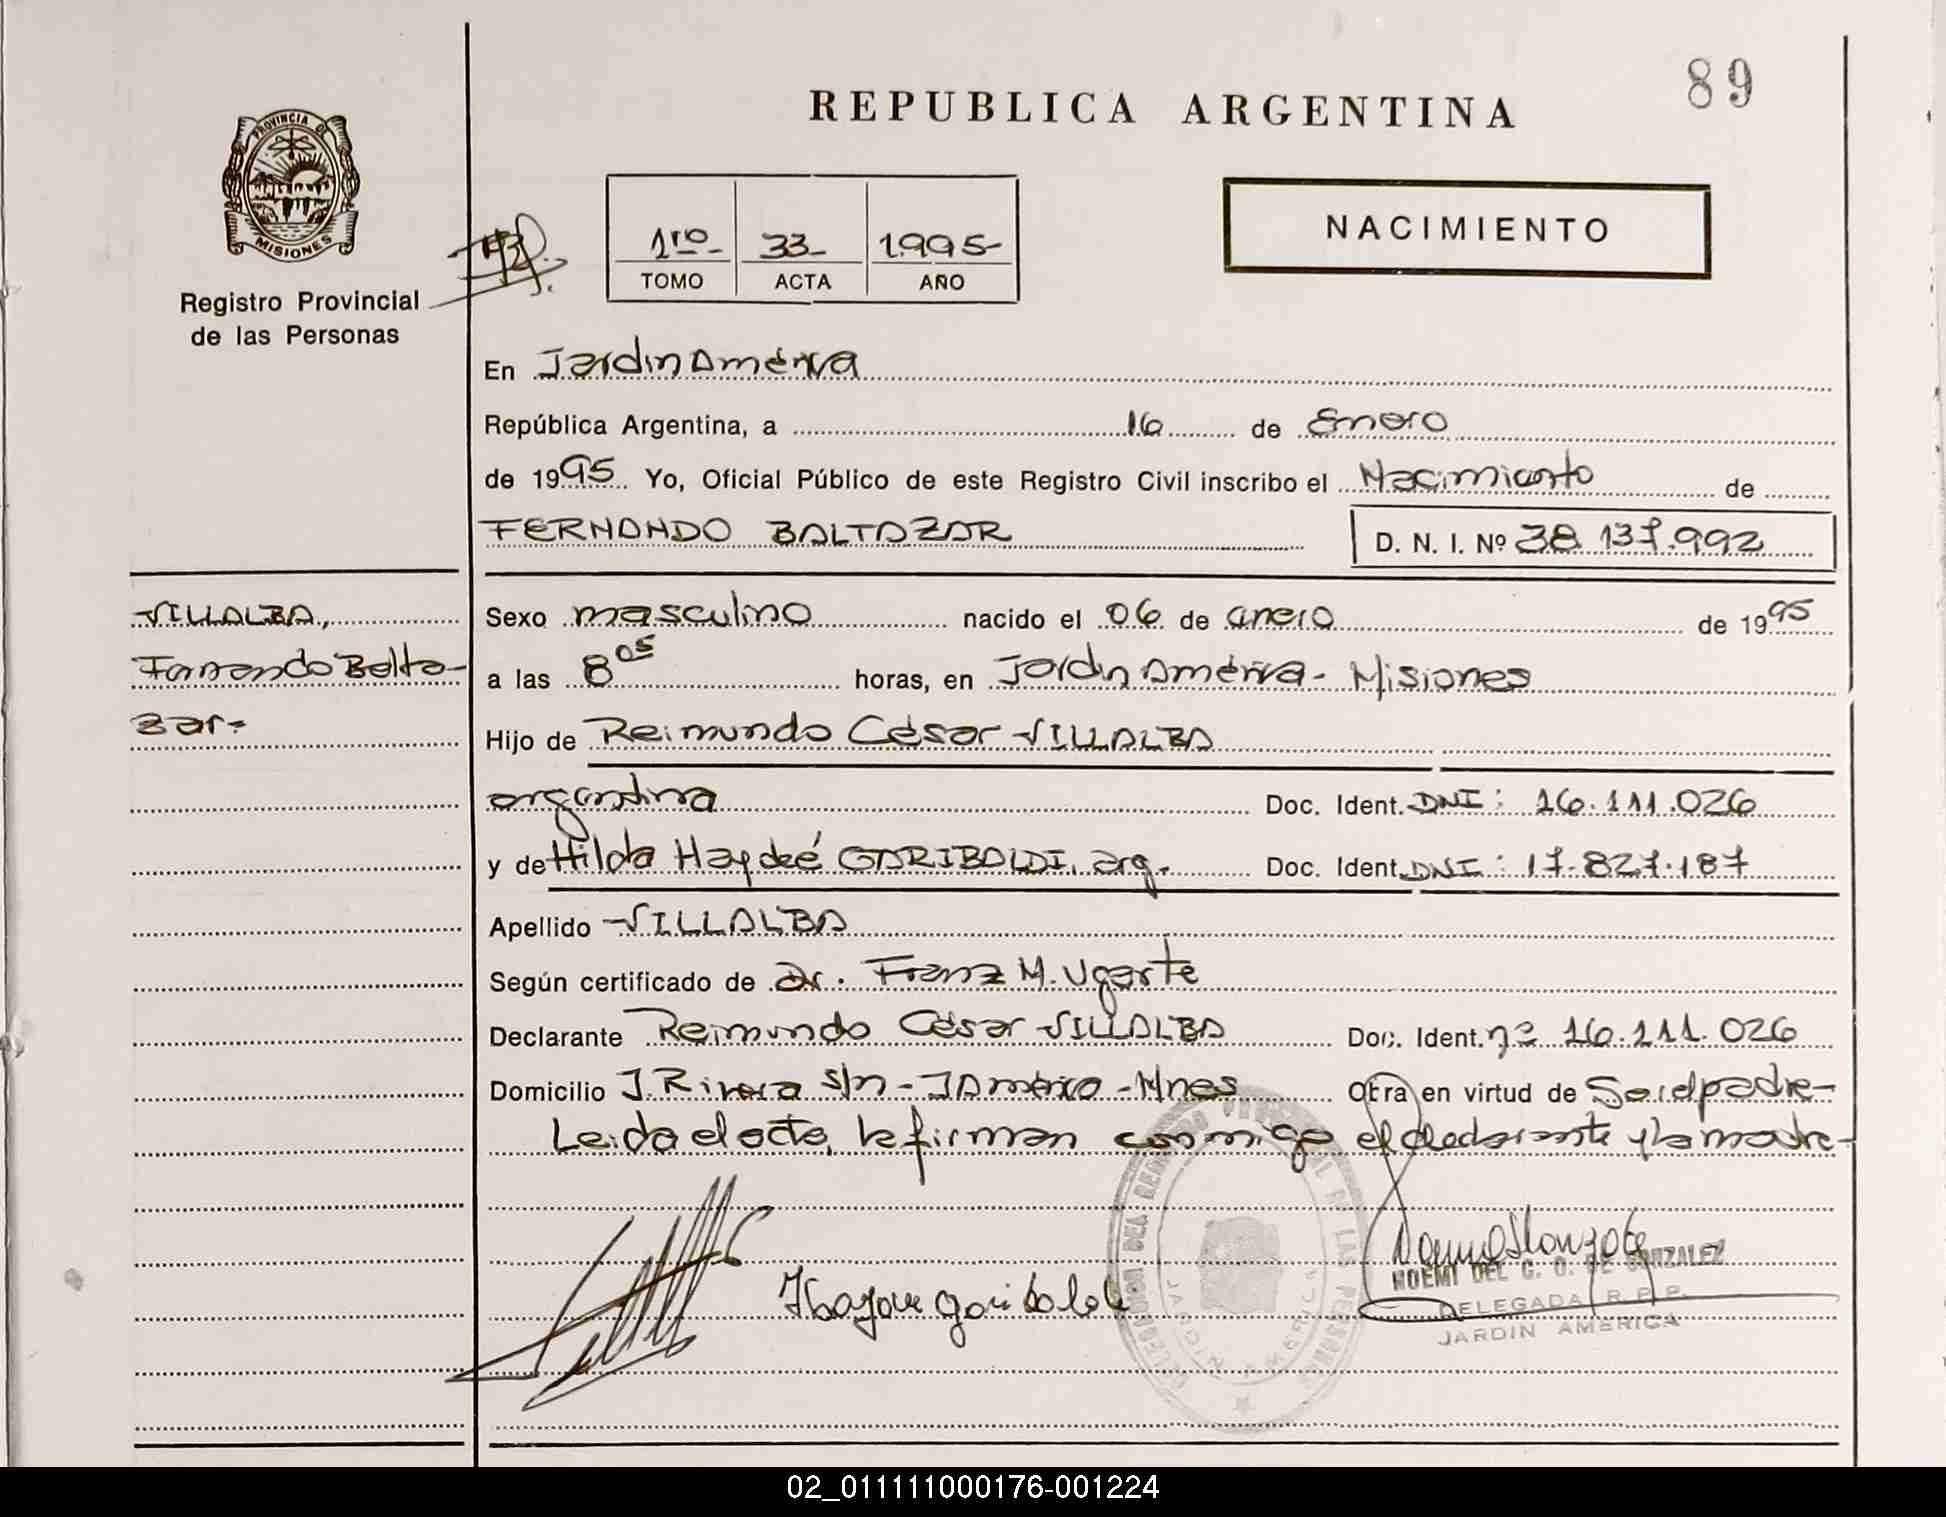 89
REPUBLICA ARGENTINA
PROVINCIA DE
MISIONES
Registro Provincial
de las Personas
1ro- 33- 1.995-
TOMO ACTA AÑO
NACIMIENTO
En Jardín América
República Argentina, a 16 de Enero
de 1995 Yo, Oficial Público de este Registro Civil inscribo el Nacimiento de
FERNANDO BALTAZAR D. N. I. Nº 38.137.992
VILLALBA,
Fernando Balta-
zar-
Sexo masculino nacido el 06 de enero de 1995
a las 8 05 horas, en Jardín América- Misiones
Hijo de Reimundo César VILLALBA
argentina Doc. Ident. DNI: 16.111.026
y de Hilda Haydeé GARIBOLDI, arg. Doc. Ident. DNI: 17.827.187
Apellido VILLALBA
Según certificado de Dr. Franz M. Ugarte
Declarante Reimundo César VILLALBA Doc. Ident. nº 16.111.026
Domicilio J. Rivera s/n - J América - Mnes Obra en virtud de Ser el padre-
Leída el acta, la firman conmigo el declarante y la madre-
NOEMI DEL C. O. DE GONZALEZ
DELEGADA R. P. P.
JARDIN AMERICA
JARDIN AMERICA
02_011111000176-001224